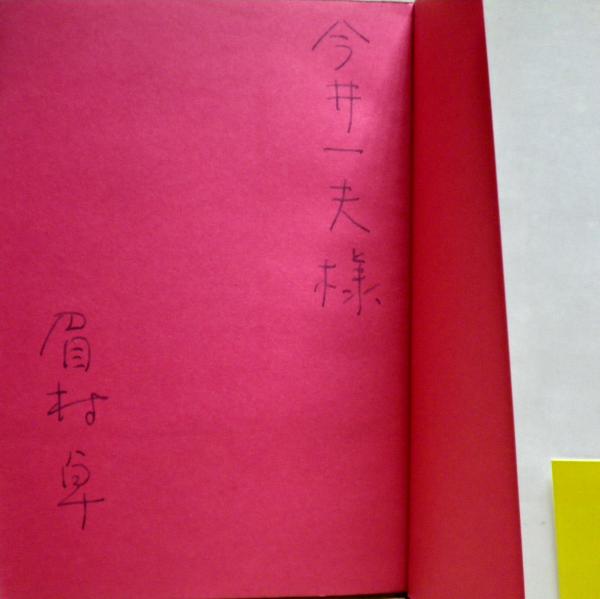 今井一夫様
眉村卓